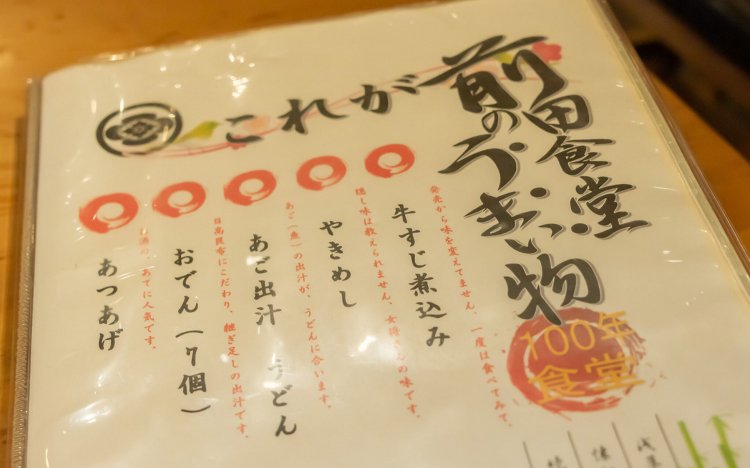 これが
前田食堂
のうまい物
100年
食堂
発売から味を変えてません、一度は食べてみて、
牛すじ煮込み
隠し味は教えられません、女将さんの味です。
やきめし
あご(魚)の出汁が、うどんに合います。
あご出汁 うどん
日高昆布にこだわり、継ぎ足しの出汁です。
おでん(7個)
お酒の、あてに人気です。
あつあげ